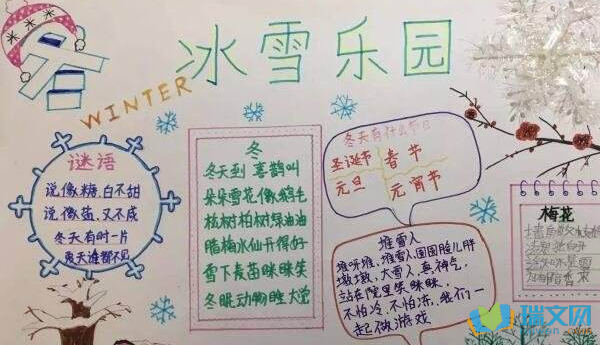 冬
冰雪乐园
WINTER
谜语
说像糖,白不甜
说像盐,又不咸
冬天有时一片
夏天谁都不见
冬
冬天到 喜鹊叫
朵朵雪花像鹅毛
松树柏树绿油油
腊梅水仙开得好
雪下麦苗眯眯笑
冬眠动物睡大觉
冬天有什么节日
圣诞节 春节
元旦 元宵节
堆雪人
堆呀堆,堆雪人,圆圆脸儿胖
墩墩,大雪人,真神气,
站在院里笑眯眯,
不怕冷,不怕冻,我们一
起做游戏
梅花
瑞文网